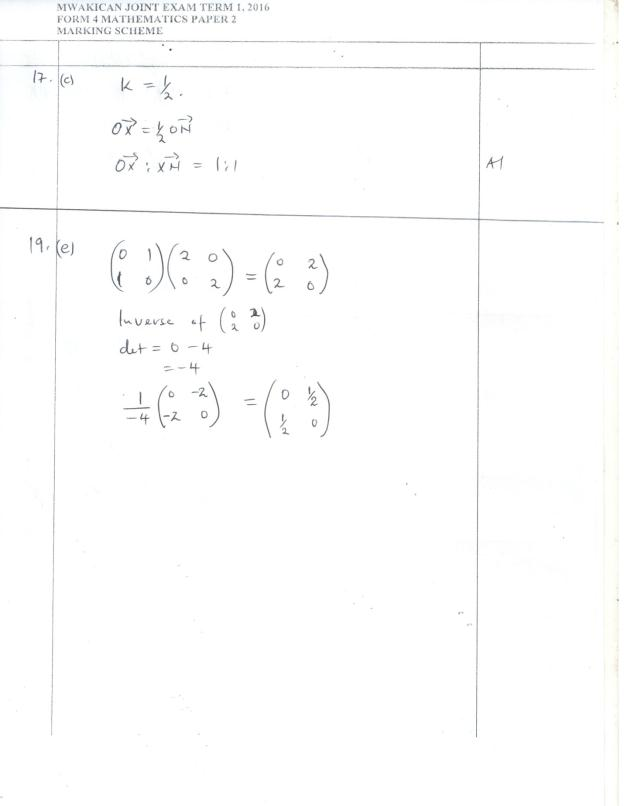 MWAKICAN JOINT EXAM TERM 1, 2016
FORM 4 MATHEMATICS PAPER 2
MARKING SCHEME
17. (c) K = 1/2.
OX→ = 1/2 ON→
OX→ : XN→ = 1:1 A1
19. (e) (0 1; 1 0)(2 0; 0 2) = (0 2; 2 0)
Inverse of (0 2; 2 0)
det = 0 - 4
= -4
1/-4 (0 -2; -2 0) = (0 1/2; 1/2 0)